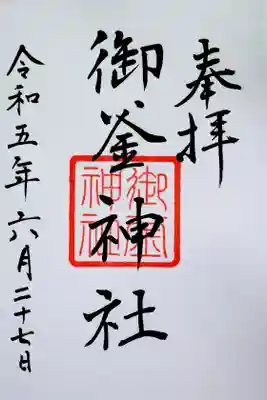 奉拝
御釜神社
御釜神社
令和五年六月二十七日